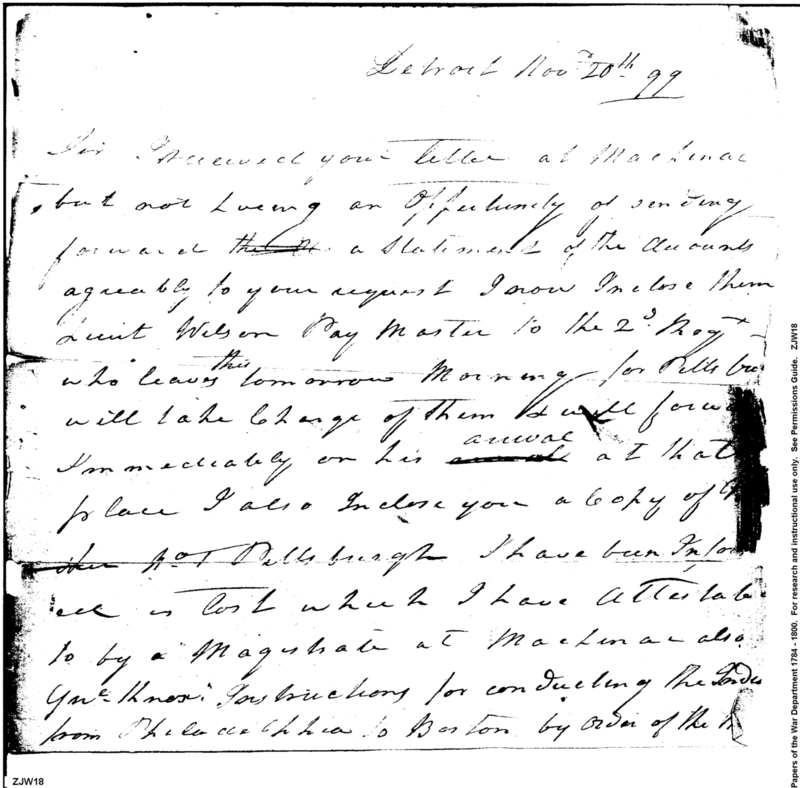 Detroit Novr 20th 99
Sir I received your letter at Mackinac
but not haveing an Oppertunity of sending
forward a Statement of the Accounts
agreably to your request I now Inclose them
Lieut Wilson Pay Master to the 2d Regt
who leaves this tomorrow Morning for Pittsbu
will take Charge of them & will forw
Immediably on his arival at that
place I also Inclose you a Copy of
No 1 Pittsburgh I have been Infor
ed is lost which I have Attested
to by a Magistrate at Mackinac also
Gnl Knox's Instructions for conducting the Indi
from Philadelphia to Boston by Order of the
Papers of the War Department 1784 - 1800. For research and instructional use only. See Permissions Guide. ZJW18
ZJW18